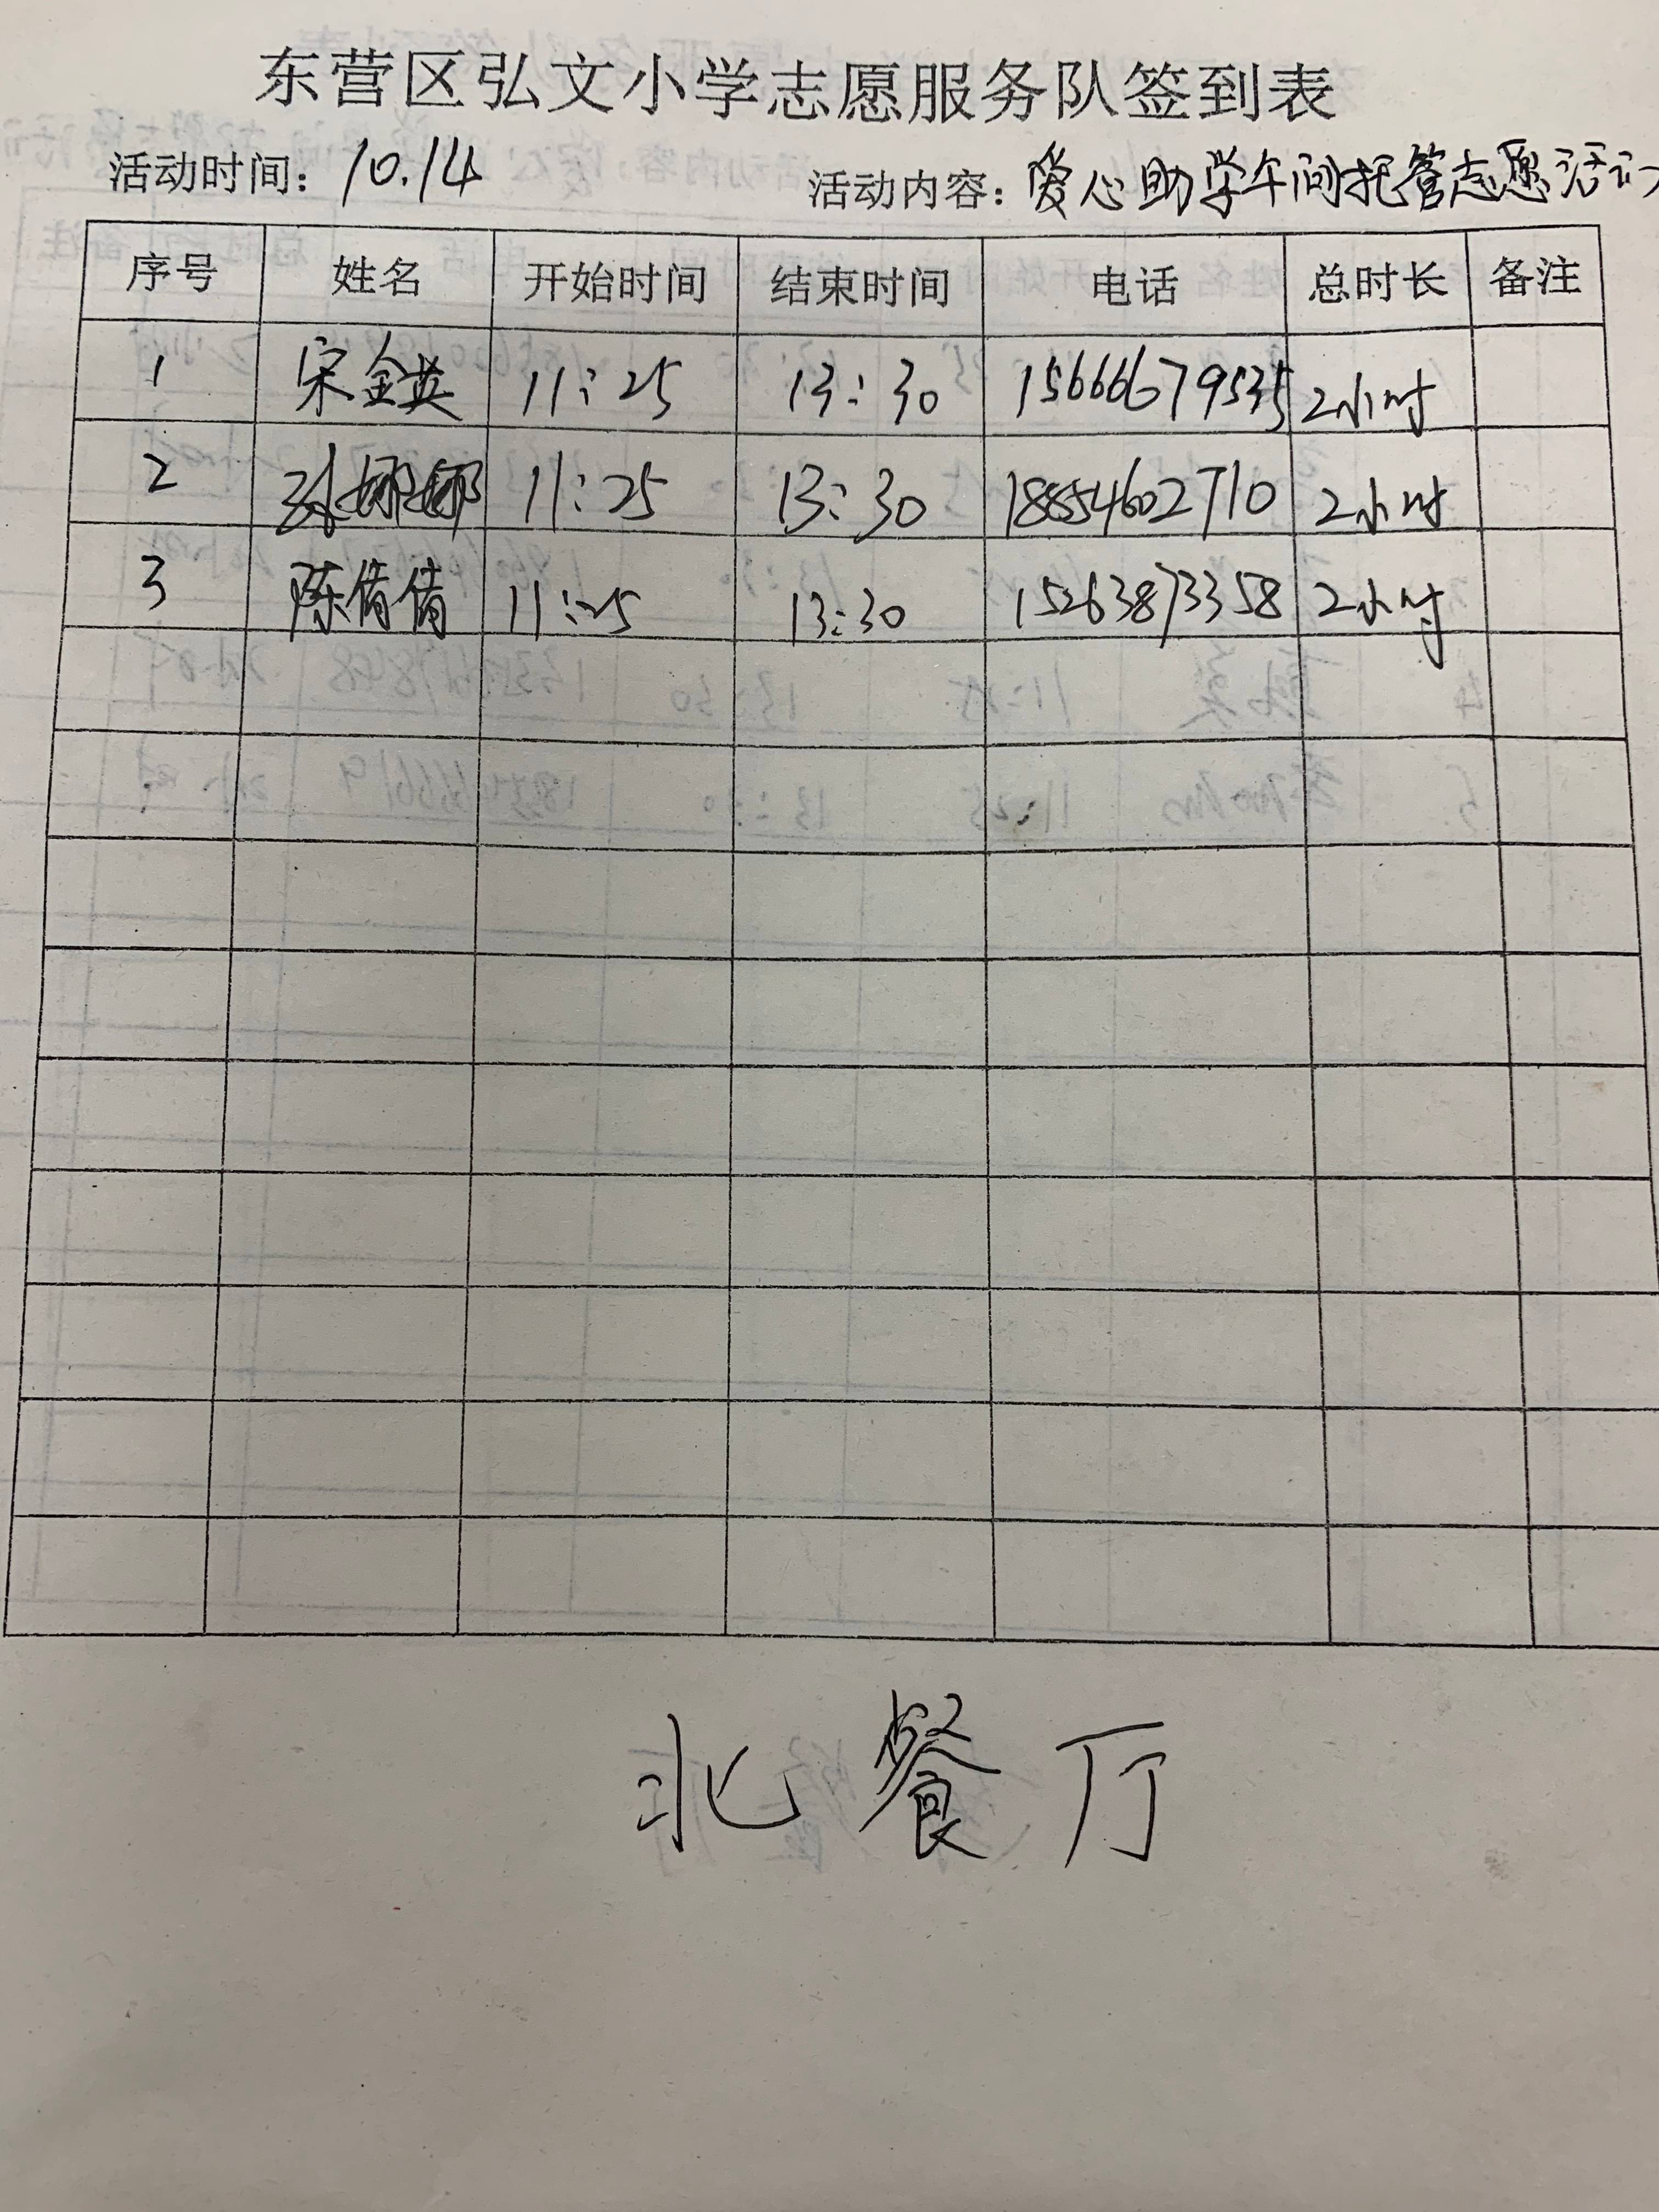 东营区弘文小学志愿服务队签到表
活动时间：10.14 活动内容：爱心助学午间托管志愿活动
序号 姓名 开始时间 结束时间 电话 总时长 备注
1 宋金英 11:25 13:30 15666679535 2小时
2 孙娜娜 11:25 13:30 18854602710 2小时
3 陈倩倩 11:25 13:30 15263873358 2小时
北餐厅